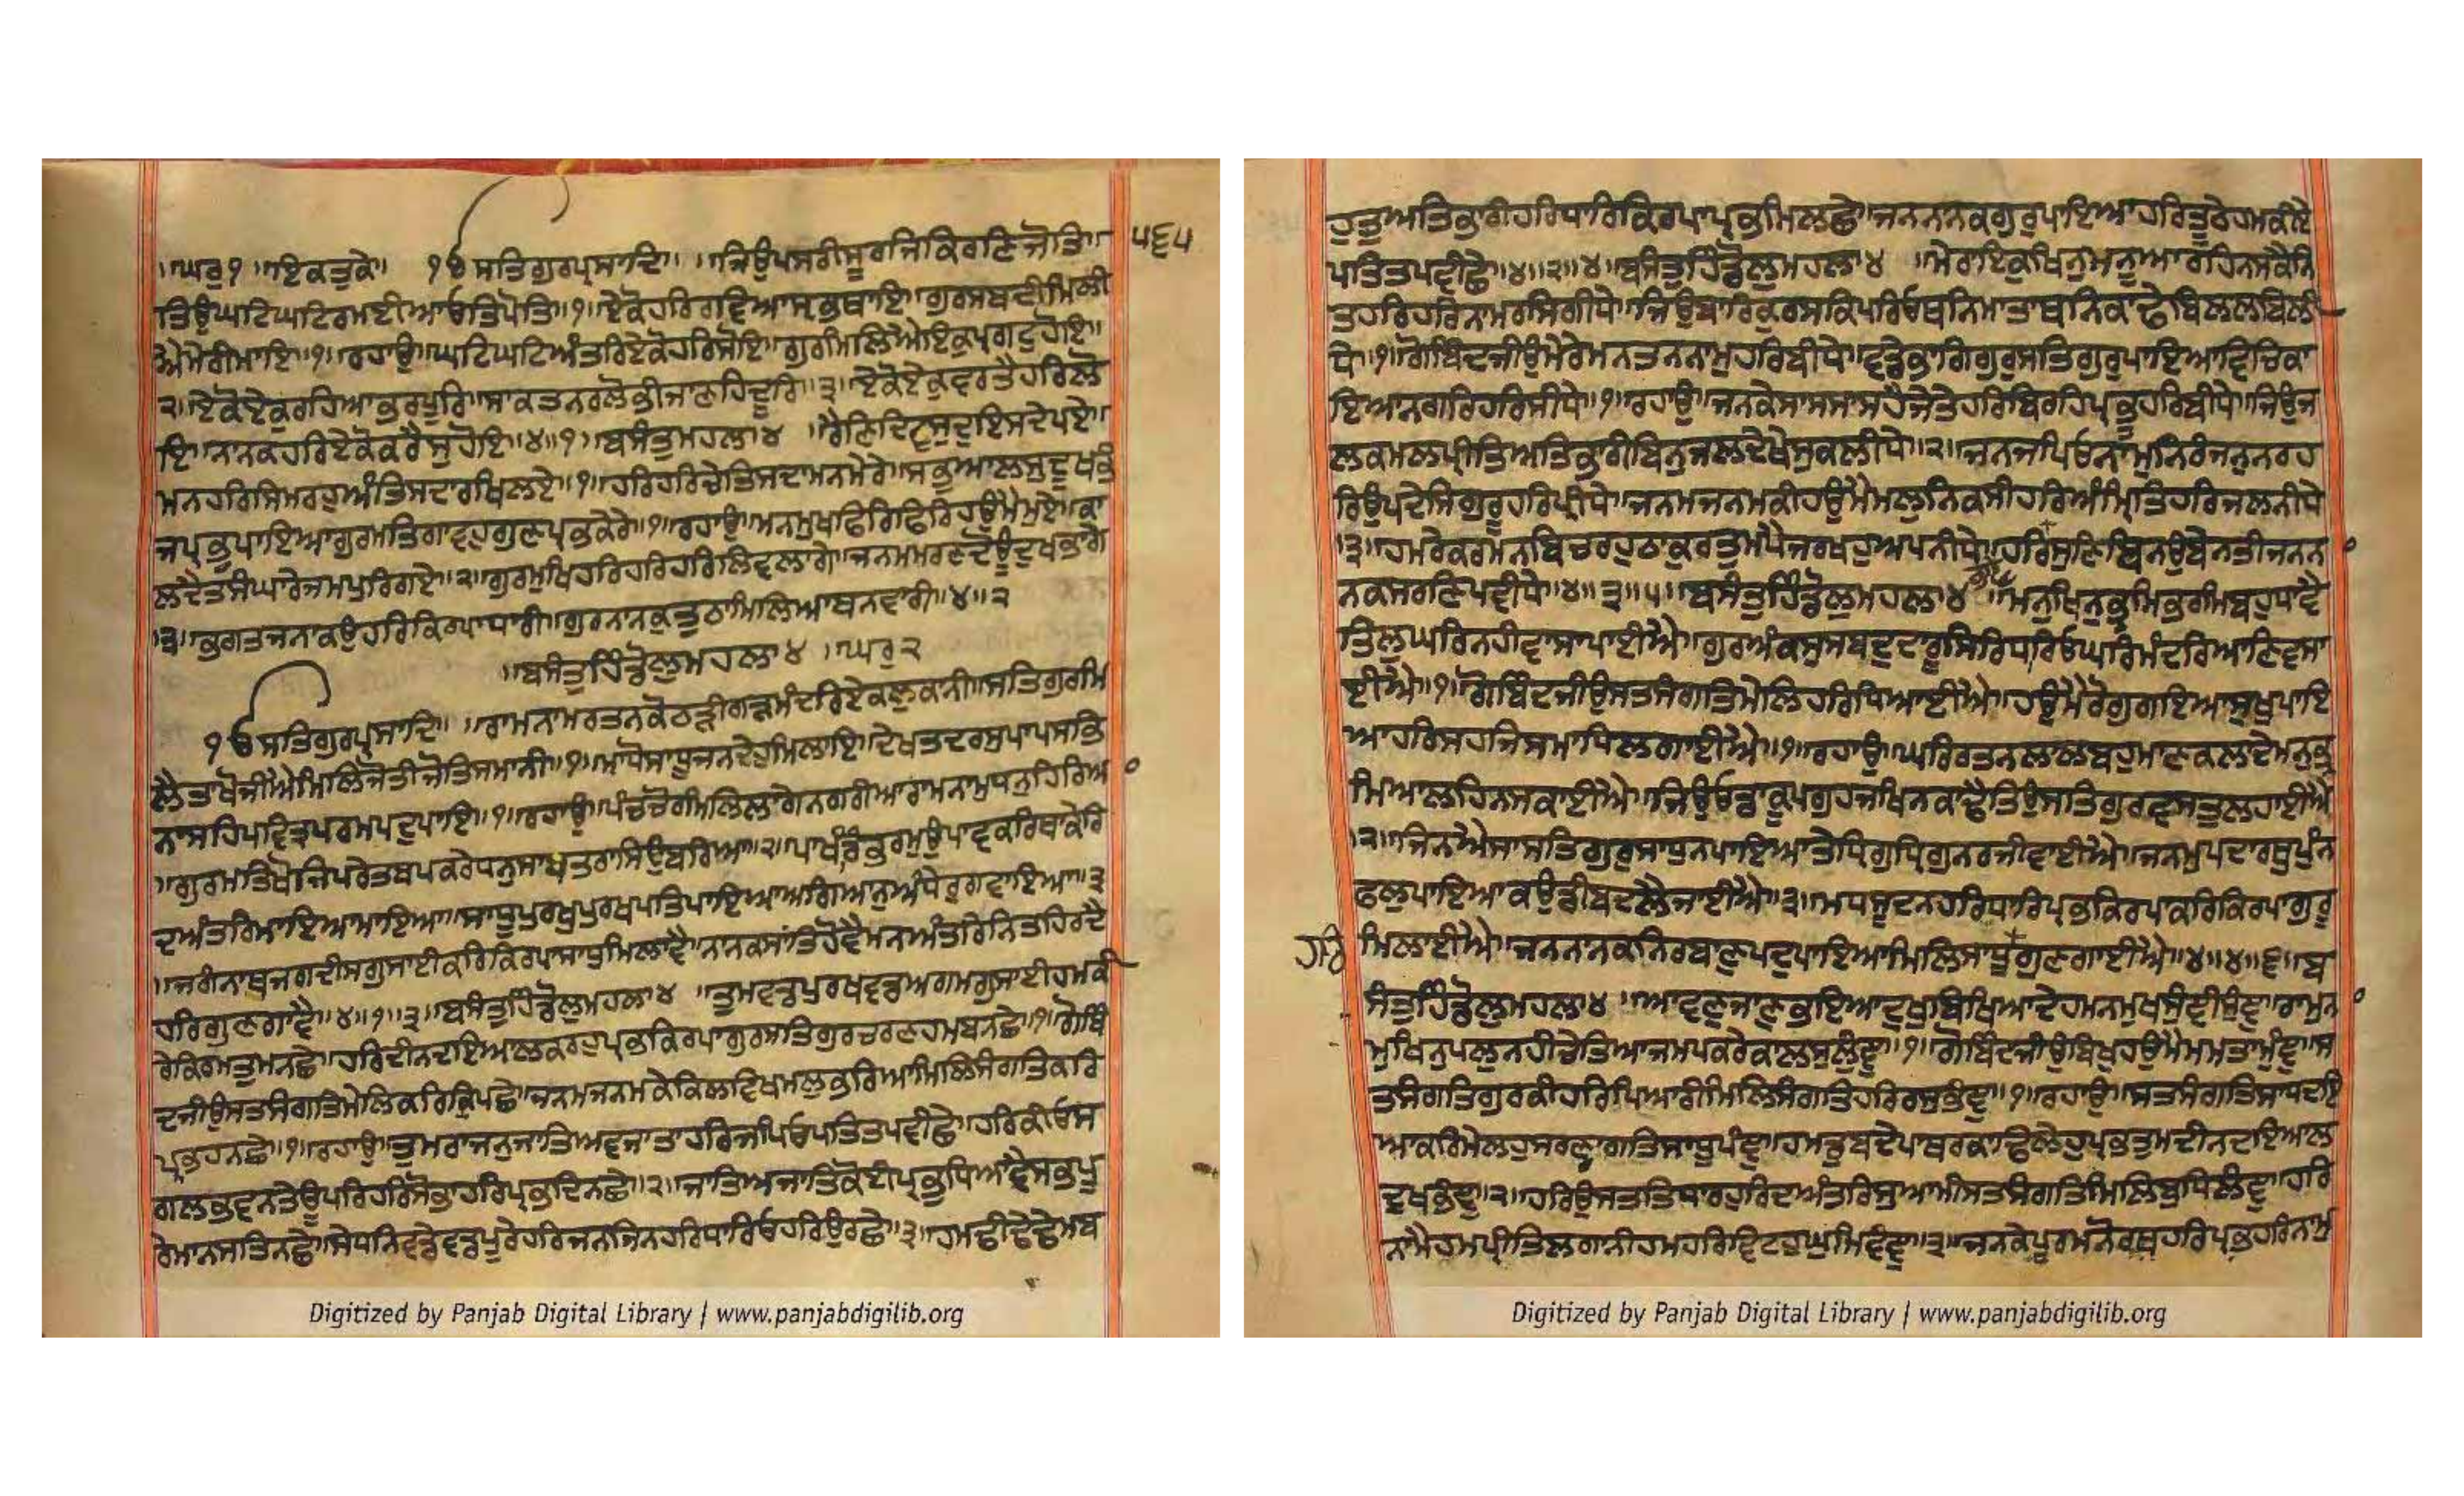 ।ਘਰੁ੧ ।ਇਕਤੁਕੇ॥ ੧ੳ ਸਤਿਗੁਰਪ੍ਰਸਾਦਿ॥ ॥ਜਿਉਪਸਰੀਸੂਰਜਿਕਿਰਣਿਜੋਤਿ॥ ੫੬੫
ਤਿਉਘਟਿਘਟਿਰਮਈਆਓਤਿਪੋਤਿ॥੧॥ਏਕੋਹਰਿਰਵਿਆਸ੍ਰਬਥਾਇ॥ਗੁਰਸਬਦੀਮਿਲੀ
ਐਮੇਰੀਮਾਇ॥੧॥ਰਹਾਉ॥ਘਟਿਘਟਿਅੰਤਰਿਏਕੋਹਰਿਸੋਇ॥ਗੁਰਿਮਿਲਿਐਇਕੁਪ੍ਰਗਟੁਹੋਇ॥
੨॥ਏਕੋਏਕੁਰਹਿਆਭਰਪੂਰਿ॥ਸਾਕਤਨਰਲੋਭੀਜਾਣਹਿਦੂਰਿ॥੩॥ਏਕੋਏਕੁਵਰਤੈਹਰਿਲੋ
ਇ॥ਨਾਨਕਹਰਿਏਕੋਕਰੈਸੁਹੋਇ॥੪॥੧॥ਬਸੰਤੁਮਹਲਾ੪ ॥ਰੈਣਿਦਿਨਸੁਦੁਇਸਦੇਪਏ॥
ਮਨਹਰਿਸਿਮਰਹੁਅੰਤਿਸਦਾਰਖਿਲਏ॥੧॥ਹਰਿਹਰਿਚੇਤਿਸਦਾਮਨਮੇਰੇ॥ਸਭੁਆਲਸੁਦੂਖਭੰ
ਜਪ੍ਰਭੁਪਾਇਆਗੁਰਮਤਿਗਾਵਹੁਗੁਣਪ੍ਰਭਕੇਰੇ॥੧॥ਰਹਾਉ॥ਮਨਮੁਖਫਿਰਿਫਿਰਿਹਉਮੈਮੁਏ॥ਕਾ
ਲਦੈਤਸੰਘਾਰੇਜਮਪੁਰਿਗਏ॥੨॥ਗੁਰਮੁਖਿਹਰਿਹਰਿਹਰਿਲਿਵਲਾਗੇ॥ਜਨਮਮਰਣਦੋਊਦੁਖਭਾਗੇ
॥੩॥ਭਗਤਜਨਾਕਉਹਰਿਕਿਰਪਾਧਾਰੀ॥ਗੁਰਨਾਨਕੁਤੁਠਾਮਿਲਿਆਬਨਵਾਰੀ॥੪॥੨
॥ਬਸੰਤੁਹਿੰਡੋਲੁਮਹਲਾ੪ ।ਘਰੁ੨
੧ੳਸਤਿਗੁਰਪ੍ਰਸਾਦਿ॥ ॥ਰਾਮਨਾਮਰਤਨਕੋਠੜੀਗੜਮੰਦਰਿਏਕਲੁਕਾਨੀ॥ਸਤਿਗੁਰਮਿ
ਲੈਤਖੋਜੀਐਮਿਲਿਜੋਤੀਜੋਤਿਸਮਾਨੀ॥੧॥ਮਾਧੋਸਾਧੂਜਨਦੇਹੁਮਿਲਾਇ॥ਦੇਖਤਦਰਸੁਪਾਪਸਭਿ
ਨਾਸਹਿਪਵਿਤ੍ਰਪਰਮਪਦੁਪਾਇ॥੧॥ਰਹਾਉ॥ਪੰਚਚੋਰਮਿਲਿਲਾਗੇਨਗਰੀਆਰਾਮਨਾਮਧਨੁਹਿਰਿਆ
॥ਗੁਰਮਤਿਖੋਜਿਪਰੇਤਬਪਕਰੇਧਨੁਸਾਬਤੁਰਾਸਿਉਬਰਿਆ॥੨॥ਪਾਖੰਡਭਰਮਉਪਾਵਕਰਿਥਾਕੇਰਿ
ਦਅੰਤਰਿਮਾਇਆਮਾਇਆ॥ਸਾਧੂਪੁਰਖੁਪੁਰਖਪਤਿਪਾਇਆਅਗਿਆਨੁਅੰਧੇਰੁਗਵਾਇਆ॥੩
॥ਜਗੰਨਾਥਜਗਦੀਸਗੁਸਾਈਕਰਿਕਿਰਪਾਸਾਧੁਮਿਲਾਵੈ॥ਨਾਨਕਸਾਂਤਿਹੋਵੈਮਨਅੰਤਰਿਨਿਤਹਿਰਦੈ
ਹਰਿਗੁਣਗਾਵੈ॥੪॥੧॥੩॥ਬਸੰਤੁਹਿੰਡੋਲੁਮਹਲਾ੪ ॥ਤੁਮਵਡਪੁਰਖਵਡਅਗਮਗੁਸਾਈਹਮਕੀ
ਰੇਕਿਰਮਤੁਮਨਛੇ॥ਹਰਿਦੀਨਦਇਆਲਕਰਹੁਪ੍ਰਭਕਿਰਪਾਗੁਰਸਤਿਗੁਰਚਰਣਹਮਬਨਛੇ॥੧॥ਗੋਬਿੰ
ਦਜੀਉਸਤਸੰਗਤਿਮੇਲਿਕਰਿਕ੍ਰਿਪਛੇ॥ਜਨਮਜਨਮਕੇਕਿਲਵਿਖਮਲੁਭਰਿਆਮਿਲਿਸੰਗਤਿਕਰਿ
ਪ੍ਰਭਹਨਛੇ॥੧॥ਰਹਾਉ॥ਤੁਮਰਾਜਨੁਜਾਤਿਅਵਜਾਤਾਹਰਿਜਪਿਓਪਤਿਤਪਵੀਛੇ॥ਹਰਿਕੀਓਸ
ਗਲਭਵਨਤੇਊਪਰਿਹਰਿਸੋਭਾਹਰਿਪ੍ਰਭਦਿਨਛੇ॥੨॥ਜਾਤਿਅਜਾਤਿਕੋਈਪ੍ਰਭਧਿਆਵੈਸਭਪੂ
ਰੇਮਾਨਸਤਿਨਛੇ॥ਸੇਧਨਿਵਡੇਵਡਪੂਰੇਹਰਿਜਨਜਿਨਹਰਿਧਾਰਿਓਹਰਿਉਰਛੇ॥੩॥ਹਮਢੀਂਢੇਢੀਮਬ
ਹੁਤੁਅਤਿਭਾਰੀਹਰਿਧਾਰਿਕਿਰਪਾਪ੍ਰਭਮਿਲਛੇ॥ਜਨਨਾਨਕਗੁਰੁਪਾਇਆਹਰਿਤੂਠੇਹਮਕੀਏ
ਪਤਿਤਪਵੀਛੇ॥੪॥੨॥੪॥ਬਸੰਤੁਹਿੰਡੋਲੁਮਹਲਾ੪ ॥ਮੇਰਾਇਕੁਖਿਨੁਮਨੂਆਰਹਿਨਸਕੈਨਿ
ਤਹਰਿਹਰਿਨਾਮਰਸਿਗੀਧੇ॥ਜਿਉਬਾਰਿਕੁਰਸਕਿਪਰਿਓਥਨਿਮਾਤਾਥਨਿਕਾਢੇਬਿਲਲਬਿਲੀ
ਧੇ॥੧॥ਗੋਬਿੰਦਜੀਉਮੇਰੇਮਨਤਨਨਾਮੁਹਰਿਬੀਧੇ॥ਵਡੇਭਾਗਿਗੁਰੁਸਤਿਗੁਰੁਪਾਇਆਵਿਚਿਕਾ
ਇਆਨਗਰਿਹਰਿਸੀਧੇ॥੧॥ਰਹਾਉ॥ਜਨਕੇਸਾਸਸਾਸਹੈਜੇਤੇਹਰਿਬਿਰਹਿਪ੍ਰਭੂਹਰਿਬੀਧੇ॥ਜਿਉਜ
ਲਕਮਲਪ੍ਰੀਤਿਅਤਿਭਾਰੀਬਿਨੁਜਲਦੇਖੇਸੁਕਲੀਧੇ॥੨॥ਜਨਜਪਿਓਨਾਮੁਨਿਰੰਜਨੁਨਰਹ
ਰਿਉਪਦੇਸਿਗੁਰੂਹਰਿਪ੍ਰੀਧੇ॥ਜਨਮਜਨਮਕੀਹਉਮੈਮਲੁਨਿਕਸੀਹਰਿਅੰਮ੍ਰਿਤਿਹਰਿਜਲਨੀਧੇ
॥੩॥ਹਮਰੇਕਰਮਨਬਿਚਰਹੁਠਾਕੁਰਤੁਮਪੈਜਰਖਹੁਅਪਨੀਧੇ॥ਹਰਿਸੁਣਿਬਿਨਉਬੇਨਤੀਜਨਨਾ
ਨਕਸਰਣਿਪਵੀਧੇ॥੪॥੩॥੫॥ਬਸੰਤੁਹਿੰਡੋਲੁਮਹਲਾ੪ ॥ਮਨੁਖਿਨੁਖਿਨੁਭਰਮਿਭਰਮਿਬਹੁਧਾਵੈ
ਤਿਲੁਘਰਿਨਹੀਵਾਸਾਪਾਈਐ॥ਗੁਰਅੰਕਸੁਸਬਦੁਦਾਰੂਸਿਰਿਧਾਰਿਓਘਰਿਮੰਦਰਿਆਣਿਵਸਾ
ਈਐ॥੧॥ਗੋਬਿੰਦਜੀਉਸਤਸੰਗਤਿਮੇਲਿਹਰਿਧਿਆਈਐ॥ਹਉਮੈਰੋਗੁਗਇਆਸੁਖੁਪਾਇ
ਆਹਰਿਸਹਜਿਸਮਾਧਿਲਗਾਈਐ॥੧॥ਰਹਾਉ॥ਘਰਿਰਤਨਲਾਲਬਹੁਮਾਣਕਲਾਦੇਮਨੁਭ੍ਰ
ਮਿਆਲਹਿਨਸਕਾਈਐ॥ਜਿਉਓਡਾਕੂਪੁਗੁਹਜਖਿਨਕਾਢੈਤਿਉਸਤਿਗੁਰਵਸਤੁਲਹਾਈਐ
॥੨॥ਜਿਨਐਸਾਸਤਿਗੁਰੁਸਾਧੁਨਪਾਇਆਤੇਧ੍ਰਿਗੁਧ੍ਰਿਗੁਨਰਜੀਵਾਈਐ॥ਜਨਮੁਪਦਾਰਥੁਪੁੰਨਿ
ਫਲੁਪਾਇਆਕਉਡੀਬਦਲੈਜਾਈਐ॥੩॥ਮਧਸੂਦਨਹਰਿਧਾਰਿਪ੍ਰਭਕਿਰਪਾਕਰਿਕਿਰਪਾਗੁਰੂ
ਮਿਲਾਈਐ॥ਜਨਨਾਨਕਨਿਰਬਾਣੁਪਦੁਪਾਇਆਮਿਲਿਸਾਧੂਗੁਣਗਾਈਐ॥੪॥੪॥੬॥ਬ
ਸੰਤੁਹਿੰਡੋਲੁਮਹਲਾ੪ ॥ਆਵਣੁਜਾਣੁਭਇਆਦੁਖੁਬਿਖਿਆਦੇਹਮਨਮੁਖਸੁੰਞੀਸੁੰਞੁ॥ਰਾਮਨਾ
ਮੁਖਿਨੁਪਲੁਨਹੀਚੇਤਿਆਜਮਪਕਰੇਕਾਲਸਲੁੰਞੁ॥੧॥ਗੋਬਿੰਦਜੀਉਬਿਖੁਹਉਮੈਮਮਤਾਮੁੰਞੁ॥ਸ
ਤਸੰਗਤਿਗੁਰਕੀਹਰਿਪਿਆਰੀਮਿਲਿਸੰਗਤਿਹਰਿਰਸੁਭੁੰਞੁ॥੧॥ਰਹਾਉ॥ਸਤਸੰਗਤਿਸਾਧਦਇ
ਆਕਰਿਮੇਲਹੁਸਰਣਾਗਤਿਸਾਧੂਪੰਞੁ॥ਹਮਡੁਬਦੇਪਾਥਰਕਾਢਿਲੇਹੁਪ੍ਰਭਤੁਮਦੀਨਦਇਆਲ
ਦੁਖਭੰਞੁ॥੨॥ਹਰਿਉਸਤਤਿਧਾਰਹੁਰਿਦਅੰਤਰਿਸੁਆਮੀਸਤਸੰਗਤਿਮਿਲਿਬੁਧਿਲੰਞੁ॥ਹਰਿ
ਨਾਮੈਹਮਪ੍ਰੀਤਿਲਗਾਨੀਹਮਹਰਿਵਿਟਹੁਘੁਮਿਵੰਞੁ॥੩॥ਜਨਕੇਪੂਰਮਨੋਰਥਹਰਿਪ੍ਰਭਹਰਿਨਾਮੁ
Digitized by Panjab Digital Library | www.panjabdigilib.org
Digitized by Panjab Digital Library | www.panjabdigilib.org